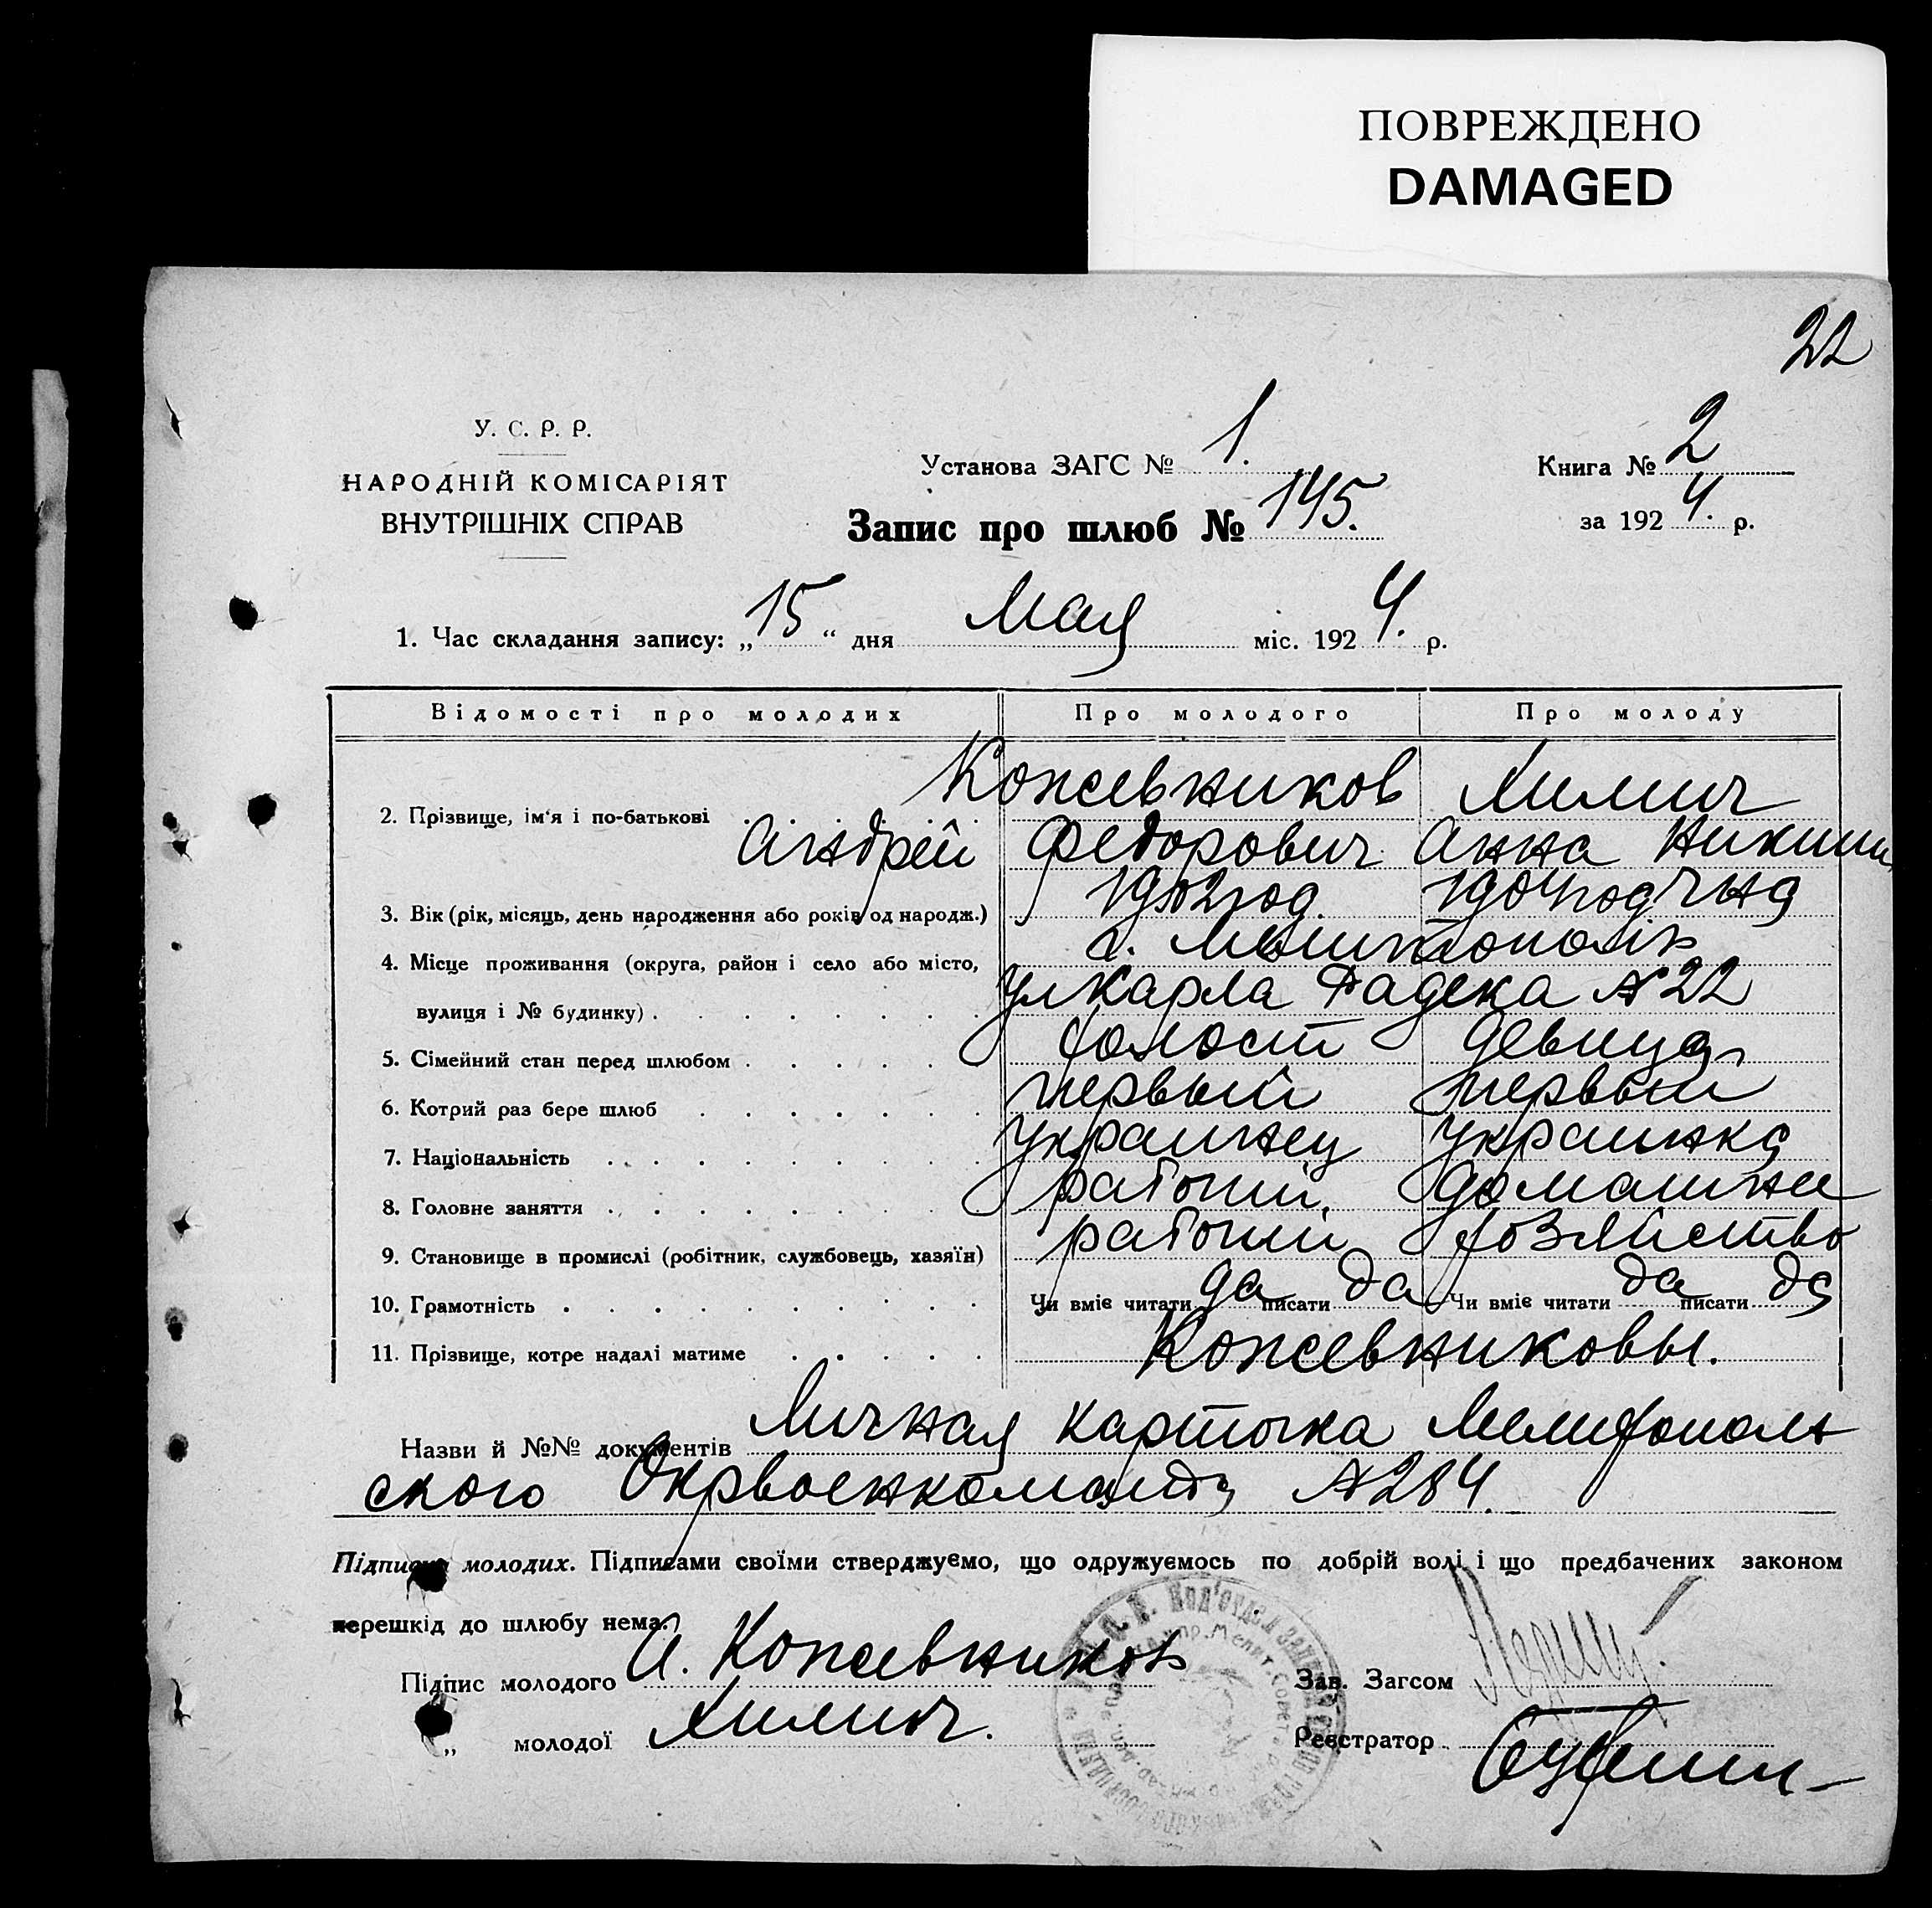 ПОВРЕЖДЕНО
DAMAGED
22
У. С. Р. Р.
НАРОДНІЙ КОМІСАРІЯТ
ВНУТРІШНІХ СПРАВ
Установа ЗАГС № 1.
Книга № 2
Запис про шлюб № 145.
за 1924. р.
1. Час складання запису: „15“ дня Мая міс. 1924. р.
Відомості про молодих Про молодого Про молоду
2. Прізвище, ім'я і по-батькові Кожевников Химич
Андрей Федорович Анна Никити
3. Вік (рік, місяць, день народження або років од народж.) 1902 год. 1904 год чна
4. Місце проживання (округа, район і село або місто, г.
вулиця і № будинку) ул Карла Радека № 22
5. Сімейний стан перед шлюбом холост девица
6. Котрий раз бере шлюб первый первый
7. Національність Украинец Украинка
8. Головне заняття рабочий, домашнее
9. Становище в промислі (робітник, службовець, хазяїн) рабочий хозяйство
10. Грамотність Чи вміє читати да писати да Чи вміє читати да писати да
11. Прізвище, котре надалі матиме Кожевниковы.
Назви й №№ документів Личная карточка Мелитополь
ского Окрвоенкомата № 284.
Підписи молодих. Підписами своїми стверджуємо, що одружуємось по добрій волі і що предбачених законом
перешкід до шлюбу нема.
Підпис молодого А. Кожевников
Зав. Загсом
„ молодої Химич.
Реєстратор